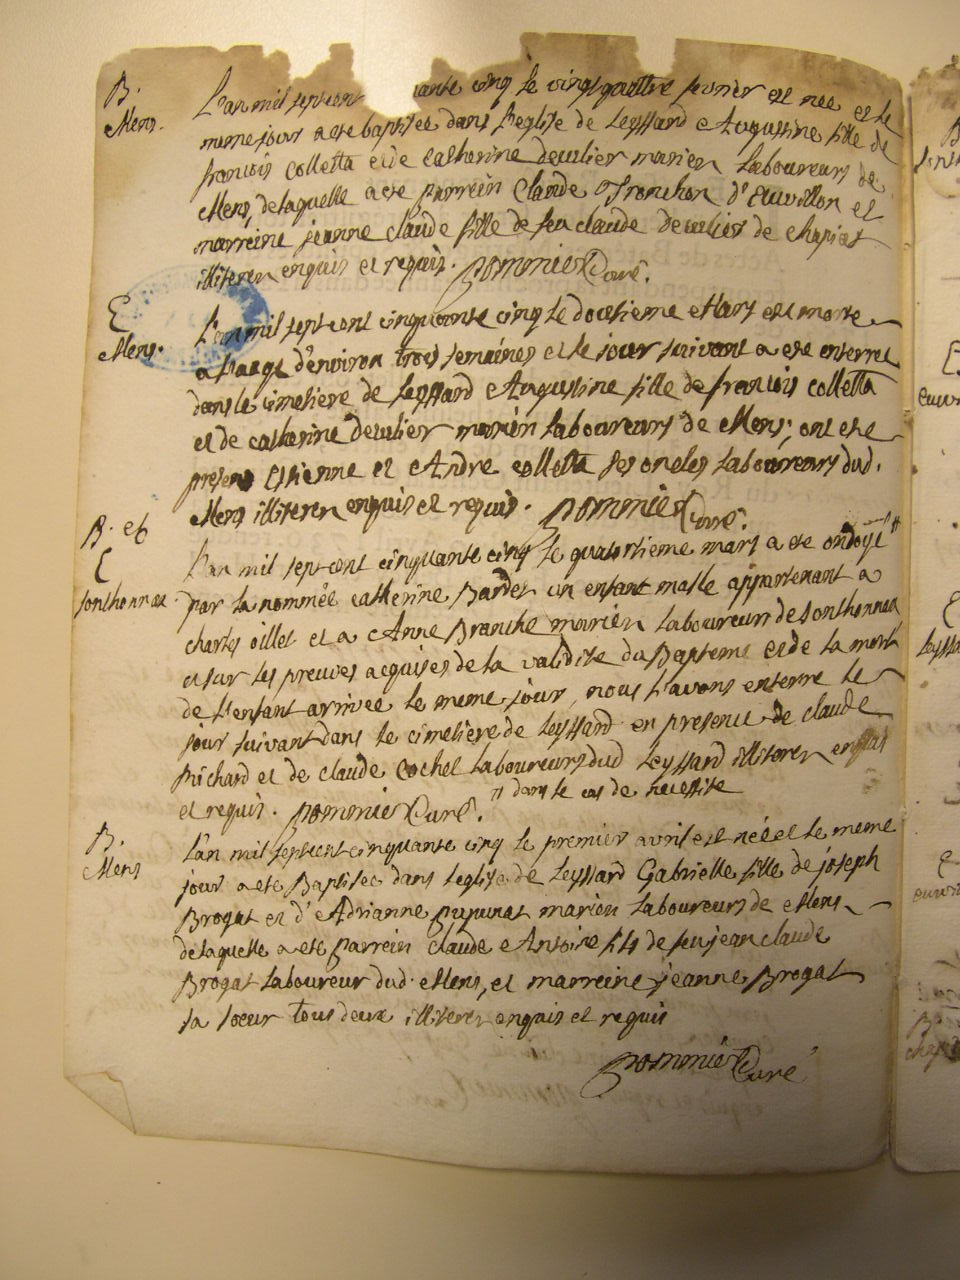 B.
Mens.
L'an mil sept cent ante cinq le vingt quattre fevrier est née et le
meme jour a ete baptisée dans l'eglise de Leyssard Augustine fille de
francois Colletta et de Catherine deculier mariés Laboureurs de
Mens, de laquelle a ete parrein Claude Tronchon d'Euvillon et
marreine jeanne claude fille de feu claude deculier de Chapiat
illiteres enquis et requis. Pommier Curé.
E
Mens.
L'an mil sept cent cinquante cinq le douzieme Mars est morte
a l'aage d'environ trois semaines et le jour suivant a ete enterrée
dans le cimetiere de Leyssard Augustine fille de francois colletta
et de catherine deculier mariés laboureurs de Mens; ont ete
presens Estienne et André colletta ses oncles laboureurs dud.
Mens illiteres enquis et requis. Pommier Curé.
B. et
E
Sonthonnax.
L'an mil sept cent cinquante cinq le quatorzieme mars a ete ondoyé "
par la nommée catherine Bardet un enfant masle appartenant a
charles oillet et a Anne Branche mariés laboureurs de Sonthonnax
et sur les preuves acquises de la validite du Bapteme et de la mort
de l'enfant arrivée le meme jour, nous l'avons enterré le
jour suivant dans le cimetiere de Leyssard en presence de claude
Richard et de claude cochet laboureurs dud Leyssard illiteres enquis
et requis. Pommier Curé. " dans le cas de necessite
B.
Mens
L'an mil sept cent cinquante cinq le premier avril est née et le meme
jour a ete Baptisée dans l'eglise de Leyssard Gabrielle fille de joseph
Brogat et d'Adrianne pupunat mariés laboureurs de Mens
de laquelle a ete parrein claude Antoine fils de feu jean claude
Brogat laboureur dud. Mens, et marreine jeanne Brogat
sa soeur tous deux illiteres enquis et requis
Pommier Curé